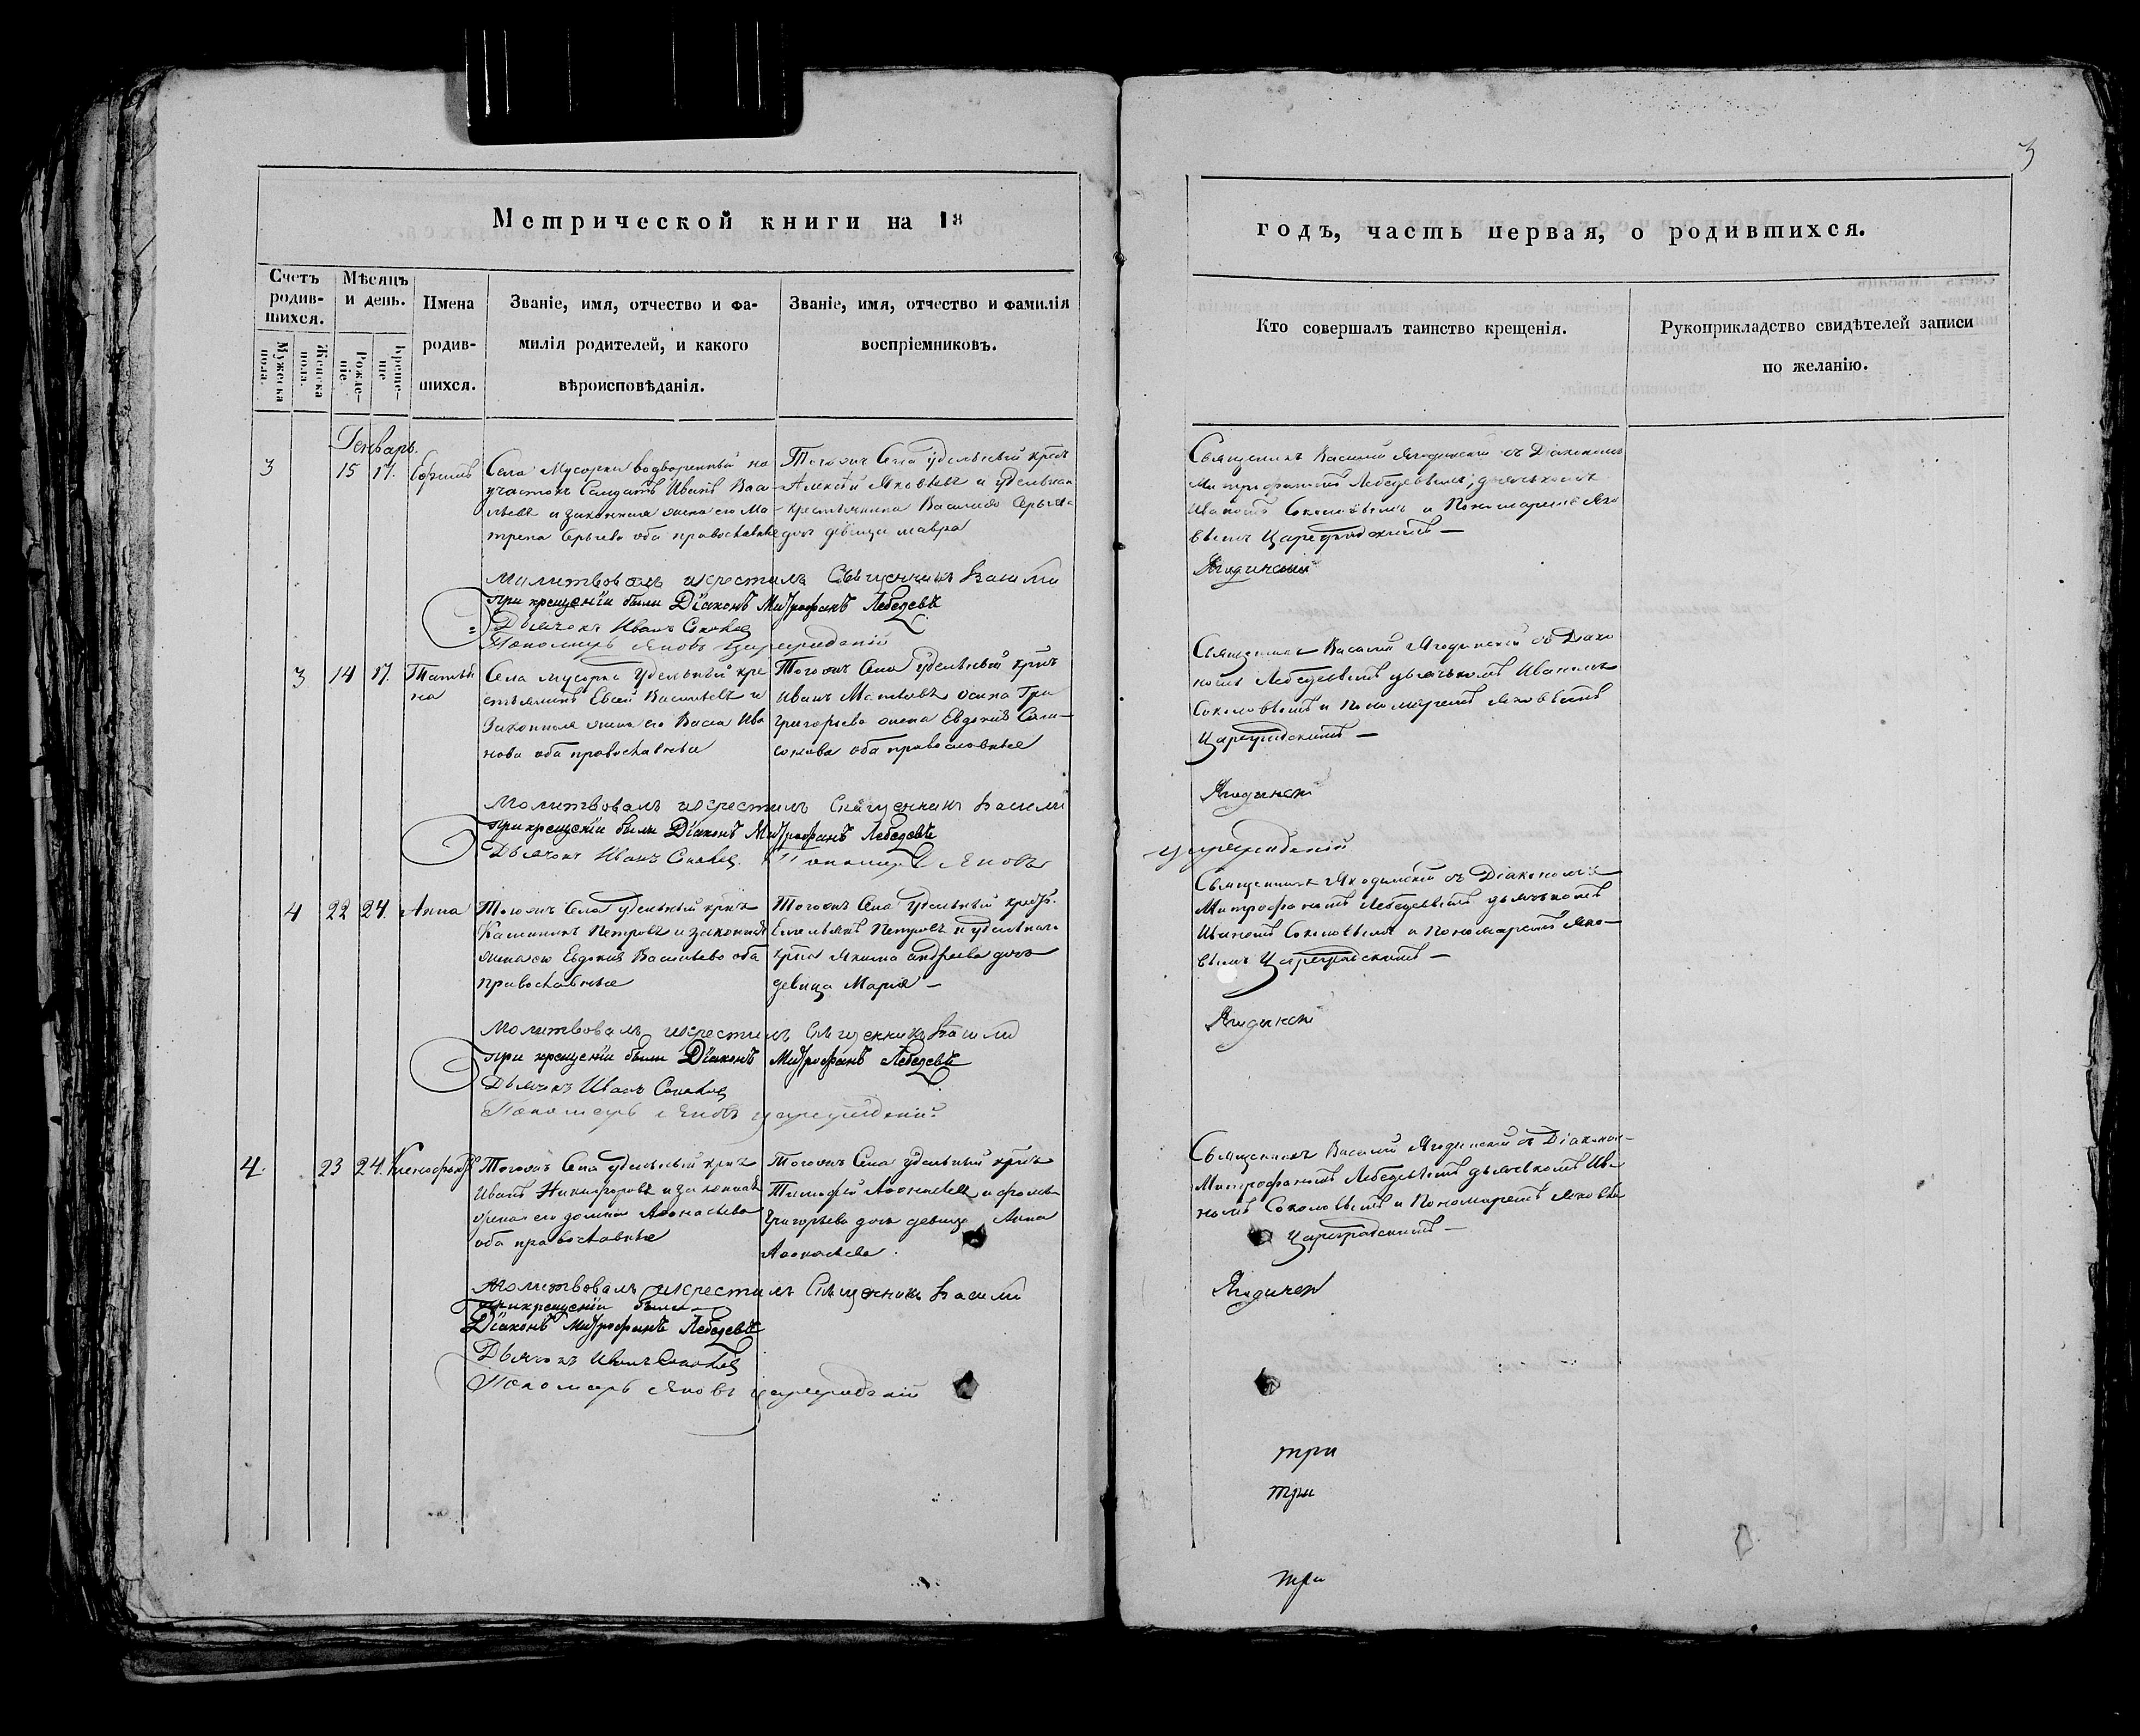 3
Метрической книги на 18
годъ, часть первая, о родившихся.
Счетъ родив-шихся.
Мужеска пола.
Женска пола.
Мѣсяцъ и день.
Рожде-ніе.
Креще-ніе
Имена
родив-
шихся.
Званіе, имя, отчество и фа-
милія родителей, и какого
вѣроисповѣданія.
Званіе, имя, отчество и фамилія
воспріемниковъ.
Кто совершалъ таинство крещенія.
Рукоприкладство свидѣтелей записи
по желанію.
Генварь
3 15 17. Ефимъ
Села Мусорки водворенный на
участокъ Солдатъ Иванъ Васи-
льевъ и законная жена его Ма-
трена оба православные
Тогожъ Села удельный крес
Алексѣй Яковлевъ и удельнаго
крестьянина Василія
доч девица мавра
Священникъ Василий Ягодинский съ Диакономъ
Митрофаномъ Лебедевымъ, дьячькомъ
Иваномъ Соколовымъ и Пономаремъ Яко
влемъ Цареградскимъ —
Молитвовалъ и крестилъ Священникъ Васили
Ягодинский
При крещеніи были Діаконъ Митрофанъ Лебедевъ
Дьячокъ Иванъ Соколов
Пономарь Яковъ Цареградский
3 14 17. Татья
на
Села мусорка Удельный кре
стьянинъ Евсей Васильевъ и
Законная жена его Васса Ива
нова оба православныя
Тогожъ Села удельный крнъ
Иванъ Матвѣевъ
Григорьева жена Евдокия
оба православные
Священникъ Василий Ягодинский съ Диако
номъ Лебедевымъ дьячькомъ Иваномъ
Соколовымъ и Пономаремъ Яковомъ
Цареградскимъ —
Молитвовалъ и крестилъ Священникъ Васили
Ягодинск
При крещеніи были Діаконъ Митрофанъ Лебедевъ
Дьячокъ Иванъ Соколов Пономарь Яковъ
Цареградский
4 22 24. Анна
Тогожъ Села удельный крнъ
Калинникъ Петровъ и законная
жена его Евдокия Васильева оба
православные
Тогожъ Села удельный
Петровъ и удельнаго
Якима андреева дочь
девица Мария —
Священникъ Ягодинский съ Діакономъ
Митрофаномъ Лебедевымъ дьячькомъ
Иваномъ Соколовымъ и Пономаремъ Яко—
вымъ Цареградскимъ —
Молитвовалъ и крестилъ Священникъ Васили
Ягодинск
При крещеніи были Діаконъ Митрофанъ Лебедевъ
Дьячокъ Иванъ Соколов
Пономарь Яковъ Цареградский
4. 23 24.
Тогожъ Села удельный крнъ
Иванъ Никифоровъ и законная
жена его Афонасьева
оба православные
Тогожъ Села удельный крнъ
Тимофей Афонасьевъ
Григорьева дочь девица Анна
Афонасьева.
Священникъ Василий Ягодинский съ Діакон-
Митрофаномъ Лебедевымъ дьячькомъ Ива
номъ Соколовымъ и Пономаремъ Яковомъ
Цареградскимъ —
Молитвовалъ и крестилъ Священникъ Васили
Ягодинск
При крещеніи были
Діаконъ Митрофанъ Лебедевъ
Дьячокъ Иванъ Соколов
Пономарь Яковъ Цареградский
три
три
три